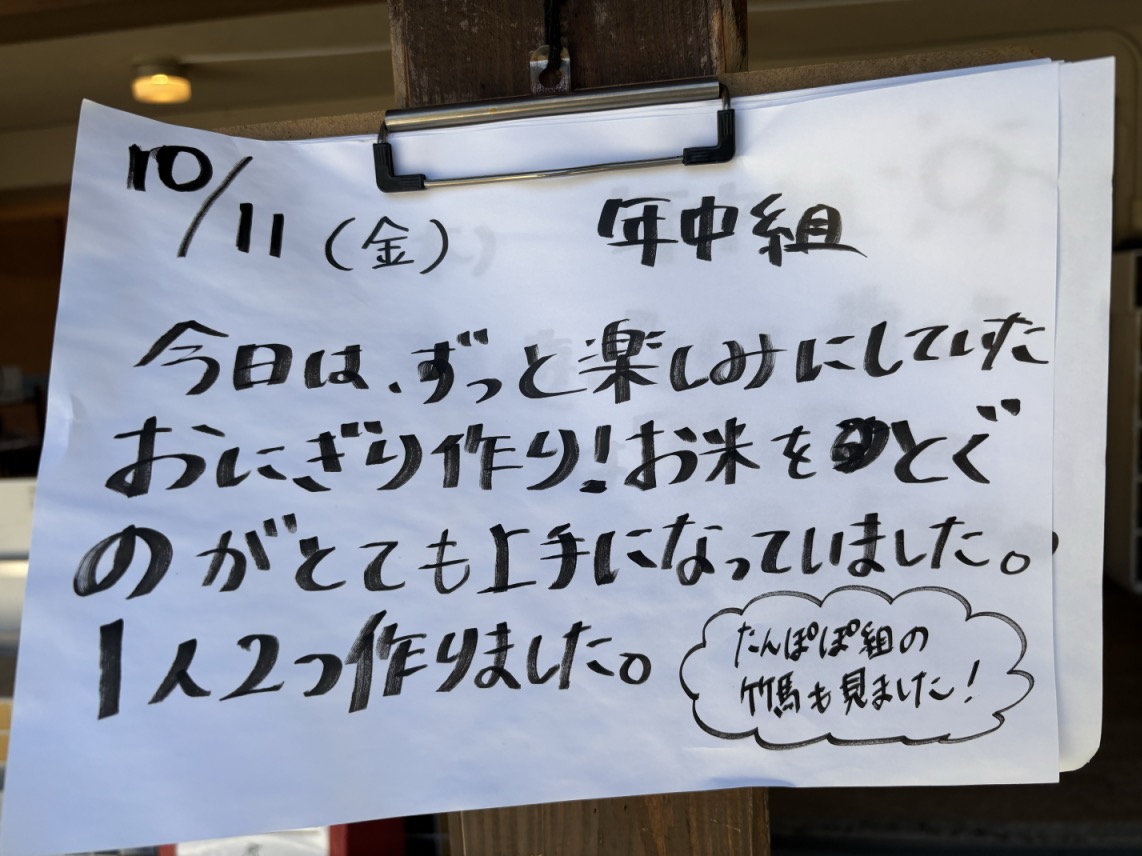 10/11(金) 年中組
今日は、ずっと楽しみにしていた
おにぎり作り!お米をとぐ
のがとても上手になっていました。
1人2つ作りました。
たんぽぽ組の
竹馬も見ました!